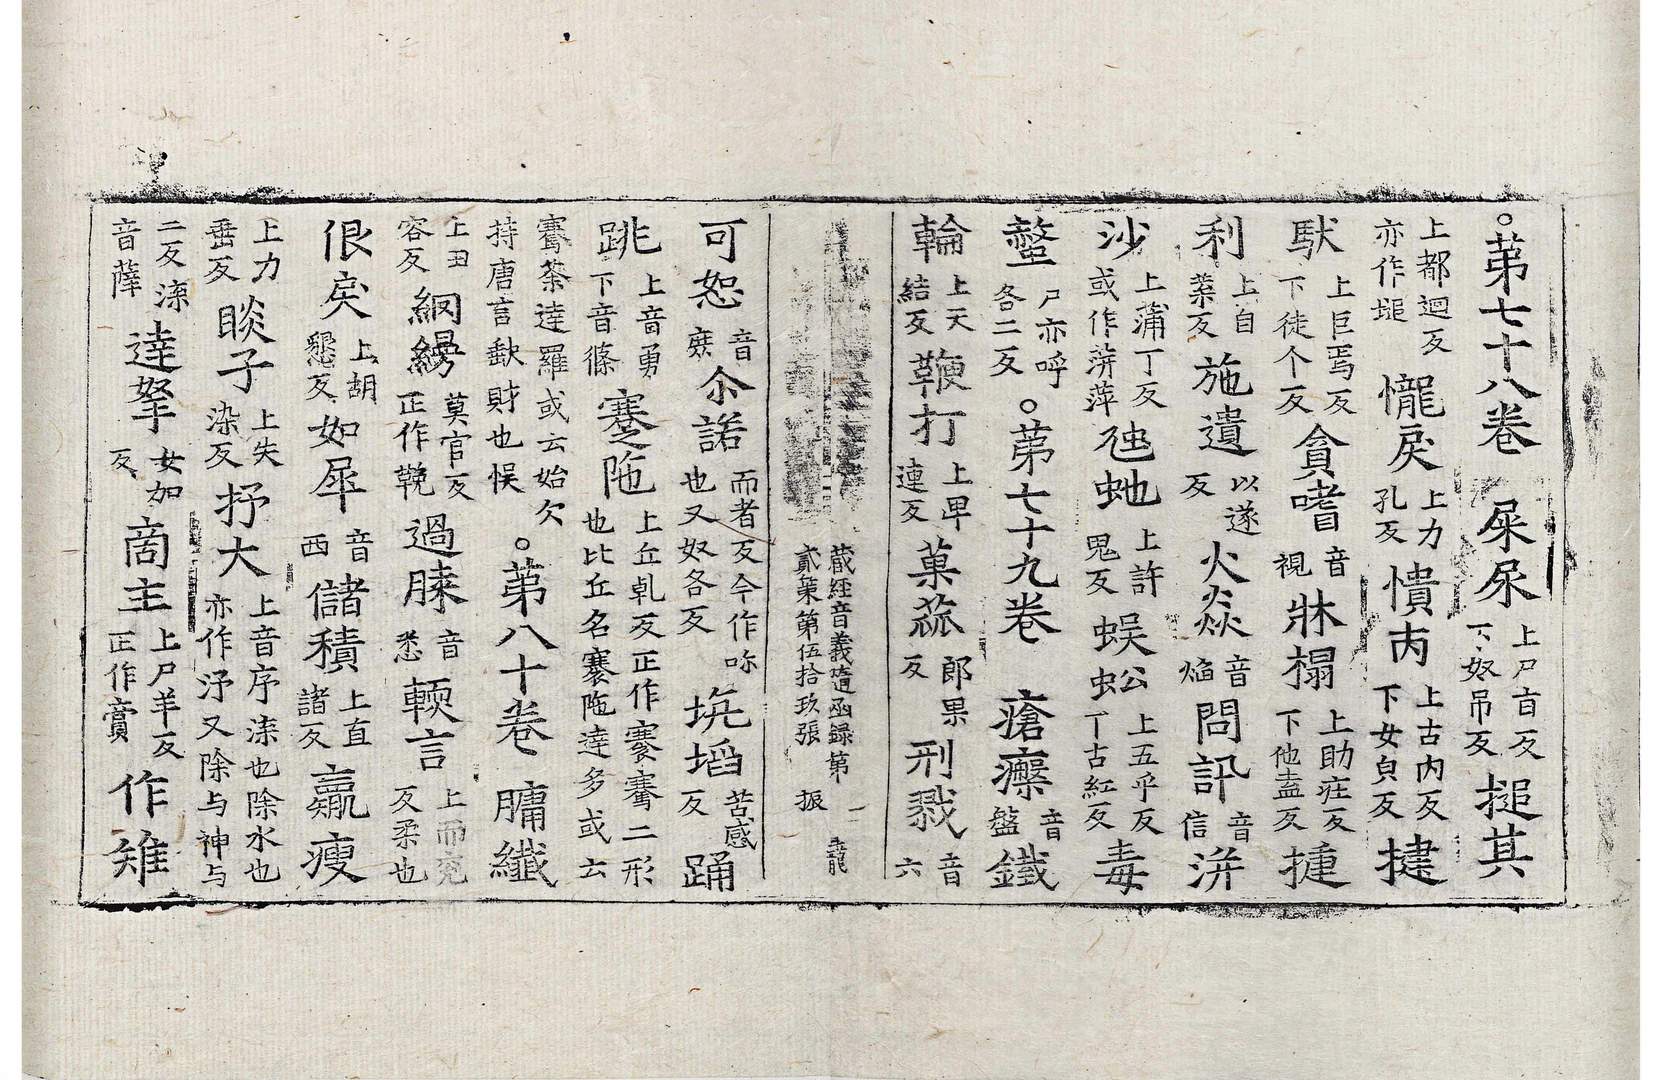 ○苐七十八卷 屎尿上尸百反下奴吊反 搥其
上都迴反亦作塠 㦕戾上力孔反 憒丙上古内反下女貞反 揵
馱上巨焉反下徒个反 貪嗜音視 牀榻上助疰反下他盍反 揰
利上自葉反 施遺以遂反 火焱音焰 問訊音信 洴
沙上蒲丁反或作洴萍 虺虵上許鬼反 蜈蚣上五乎反丅古紅反 毒
螫尸亦呼各二反 ○苐七十九卷 瘡癦音盤 鐵
輪上天結反 鞭打上早連反 菓蓏郎果反 刑戮音六
藏經音義隨函録第貳策第伍拾玖張 振
可恕音庶 尒諾而者反今作呇也又奴各反 埳埳苦感反 踊
跳上音勇下音條 蹇陁上丘乹反正作騫騫二形也比丘名褰陁達多或云
騫荼達羅或云始欠持唐言歃財也悮 ○苐八十卷 牗纖
上丑容反 網縵莫官反正作鞔 過膝音悉 輭言上而兖反柔也
佷戾上胡懇反 如犀音西 儲積上直諸反 羸瘦
上力垂反 睒子上失染反 抒大上音序渿也除水也亦作汿又除与神与
二反渿音薩 達拏女如反 啇主上尸羊反正作賫 作雉